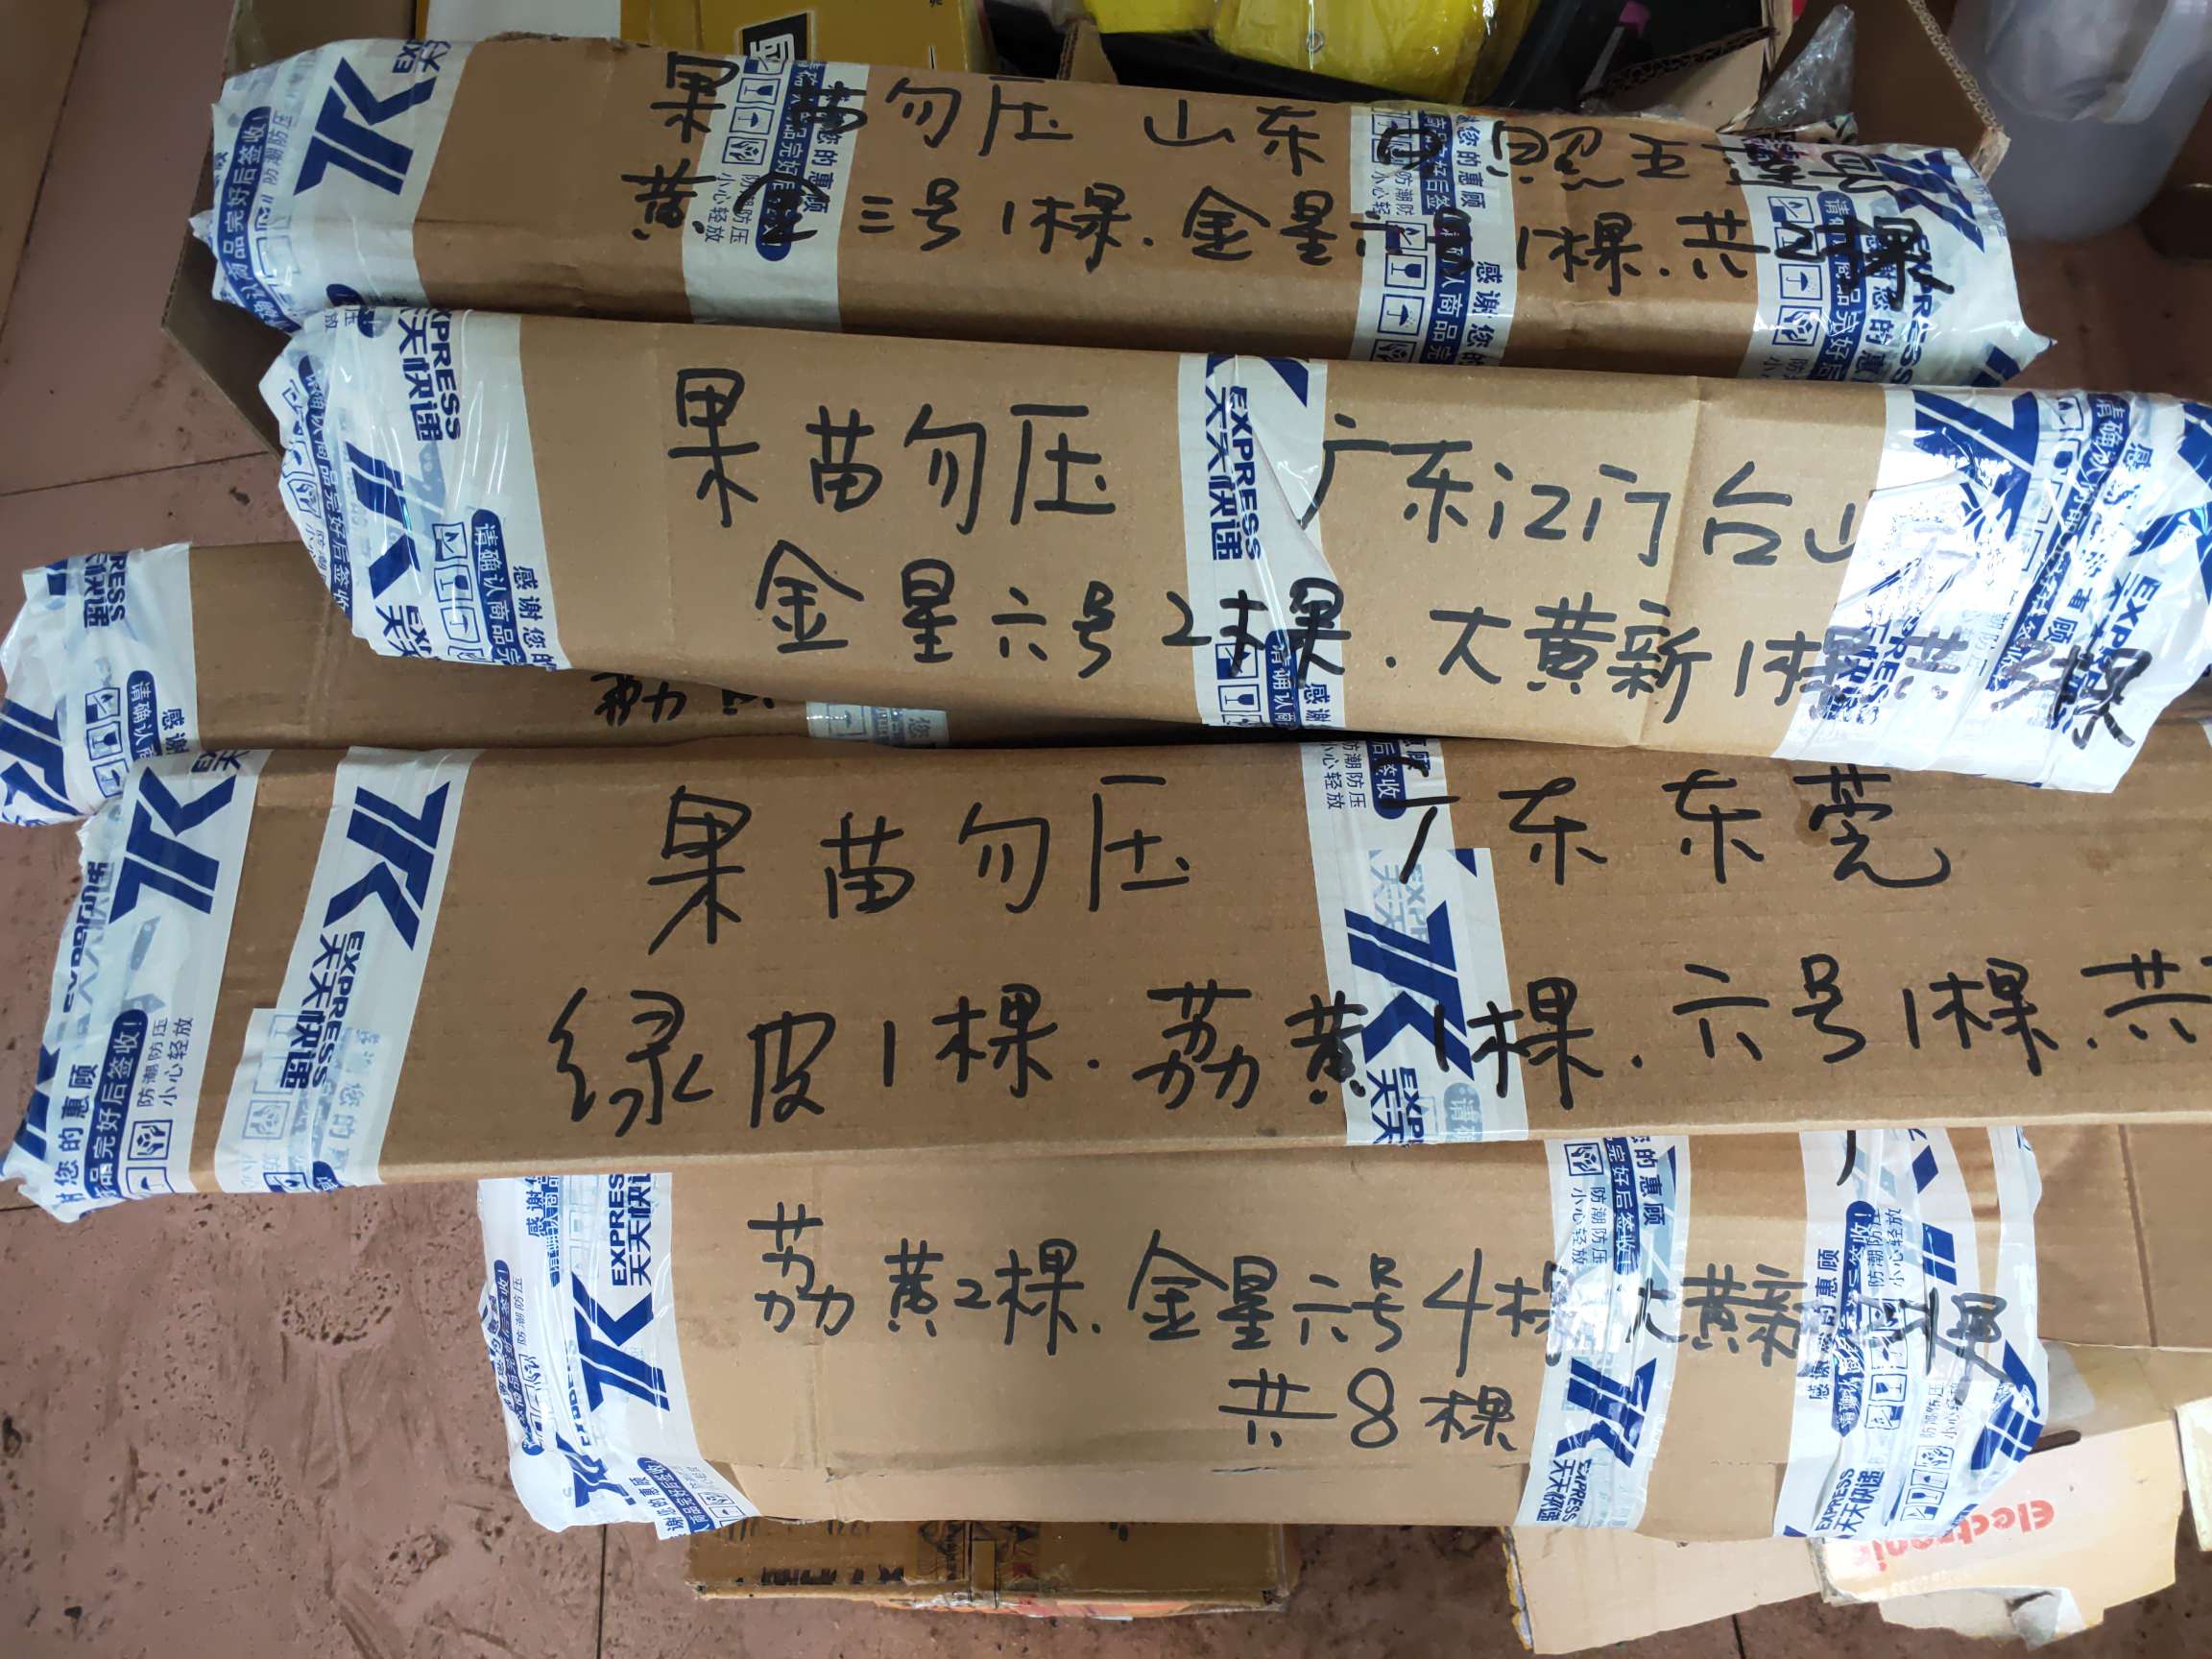 果苗勿压 山东日照五莲县
黄金三号1棵.金星六号1棵.共2棵
果苗勿压 广东江门台山
金星六号2棵.大黄新1棵.共3棵
果苗勿压 广东东莞
绿皮1棵.荔黄1棵.六号1棵.共
荔黄2棵.金星六号4棵.大黄新2棵
共8棵
EXPRESS
天天快递
感谢您的惠顾
请确认商品完好后签收!
防潮防压
小心轻放
Electronic